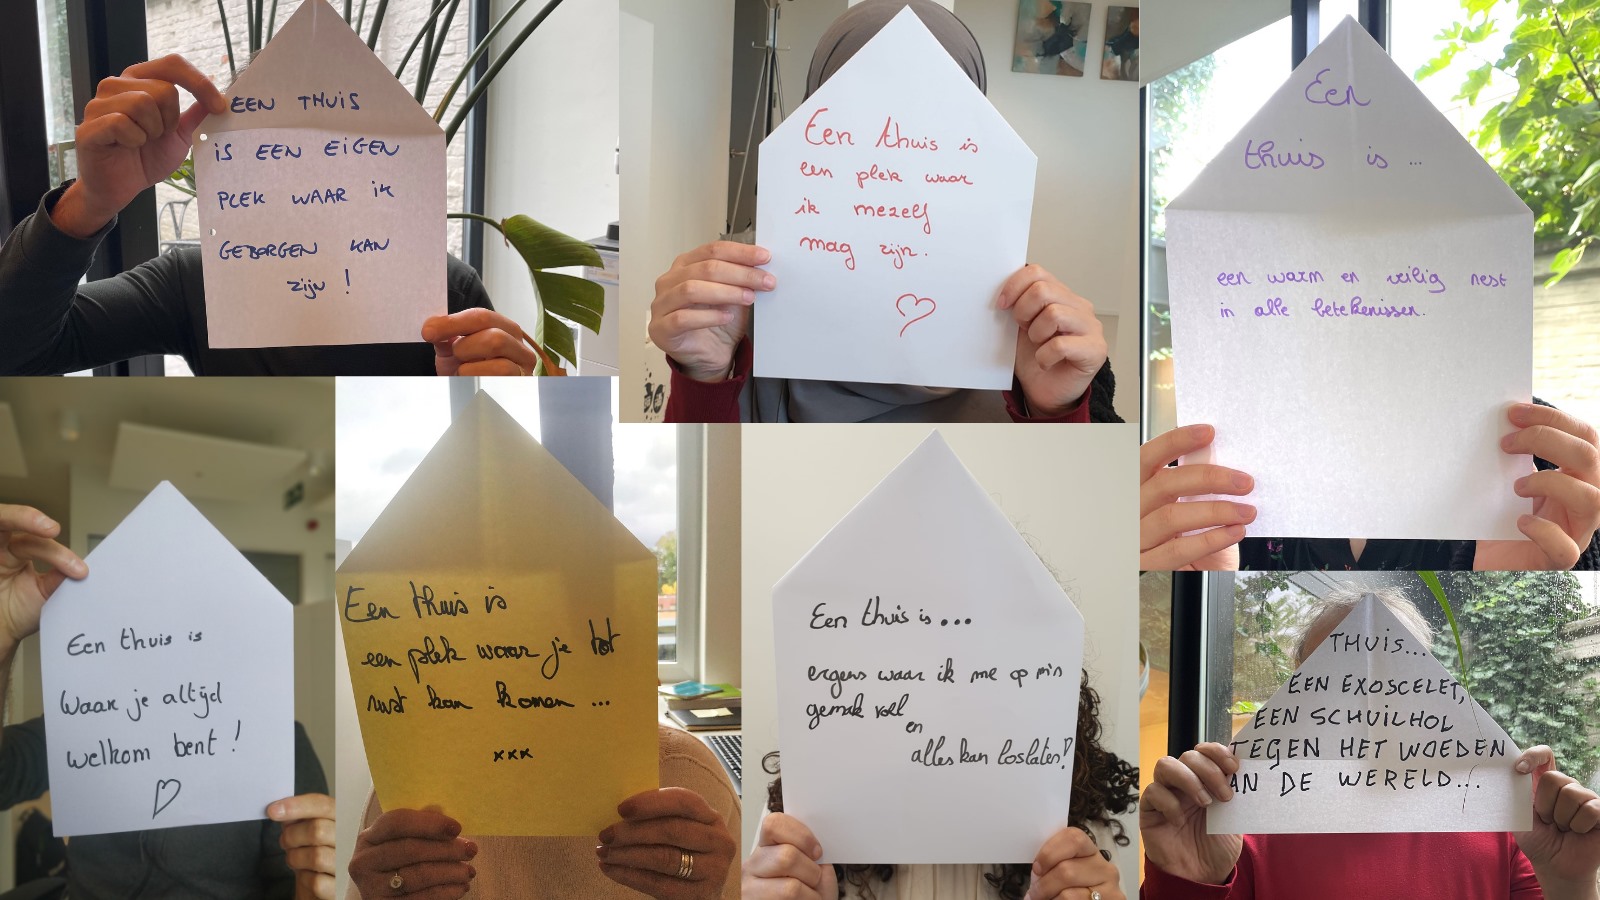 EEN THUIS
IS EEN EIGEN
PLEK WAAR IK
GEBORGEN KAN
ZIJN !
Een thuis is
een plek waar
ik mezelf
mag zijn.
Een
thuis is ...
een warm en veilig nest
in alle betekenissen.
Een thuis is
waar je altijd
welkom bent !
Een thuis is
een plek waar je tot
rust kan komen ...
xxx
Een thuis is ...
ergens waar ik me op m'n
gemak voel
en
alles kan loslaten!
THUIS...
EEN EXOSCELET,
EEN SCHUILHOL
TEGEN HET WOEDEN
AN DE WERELD...